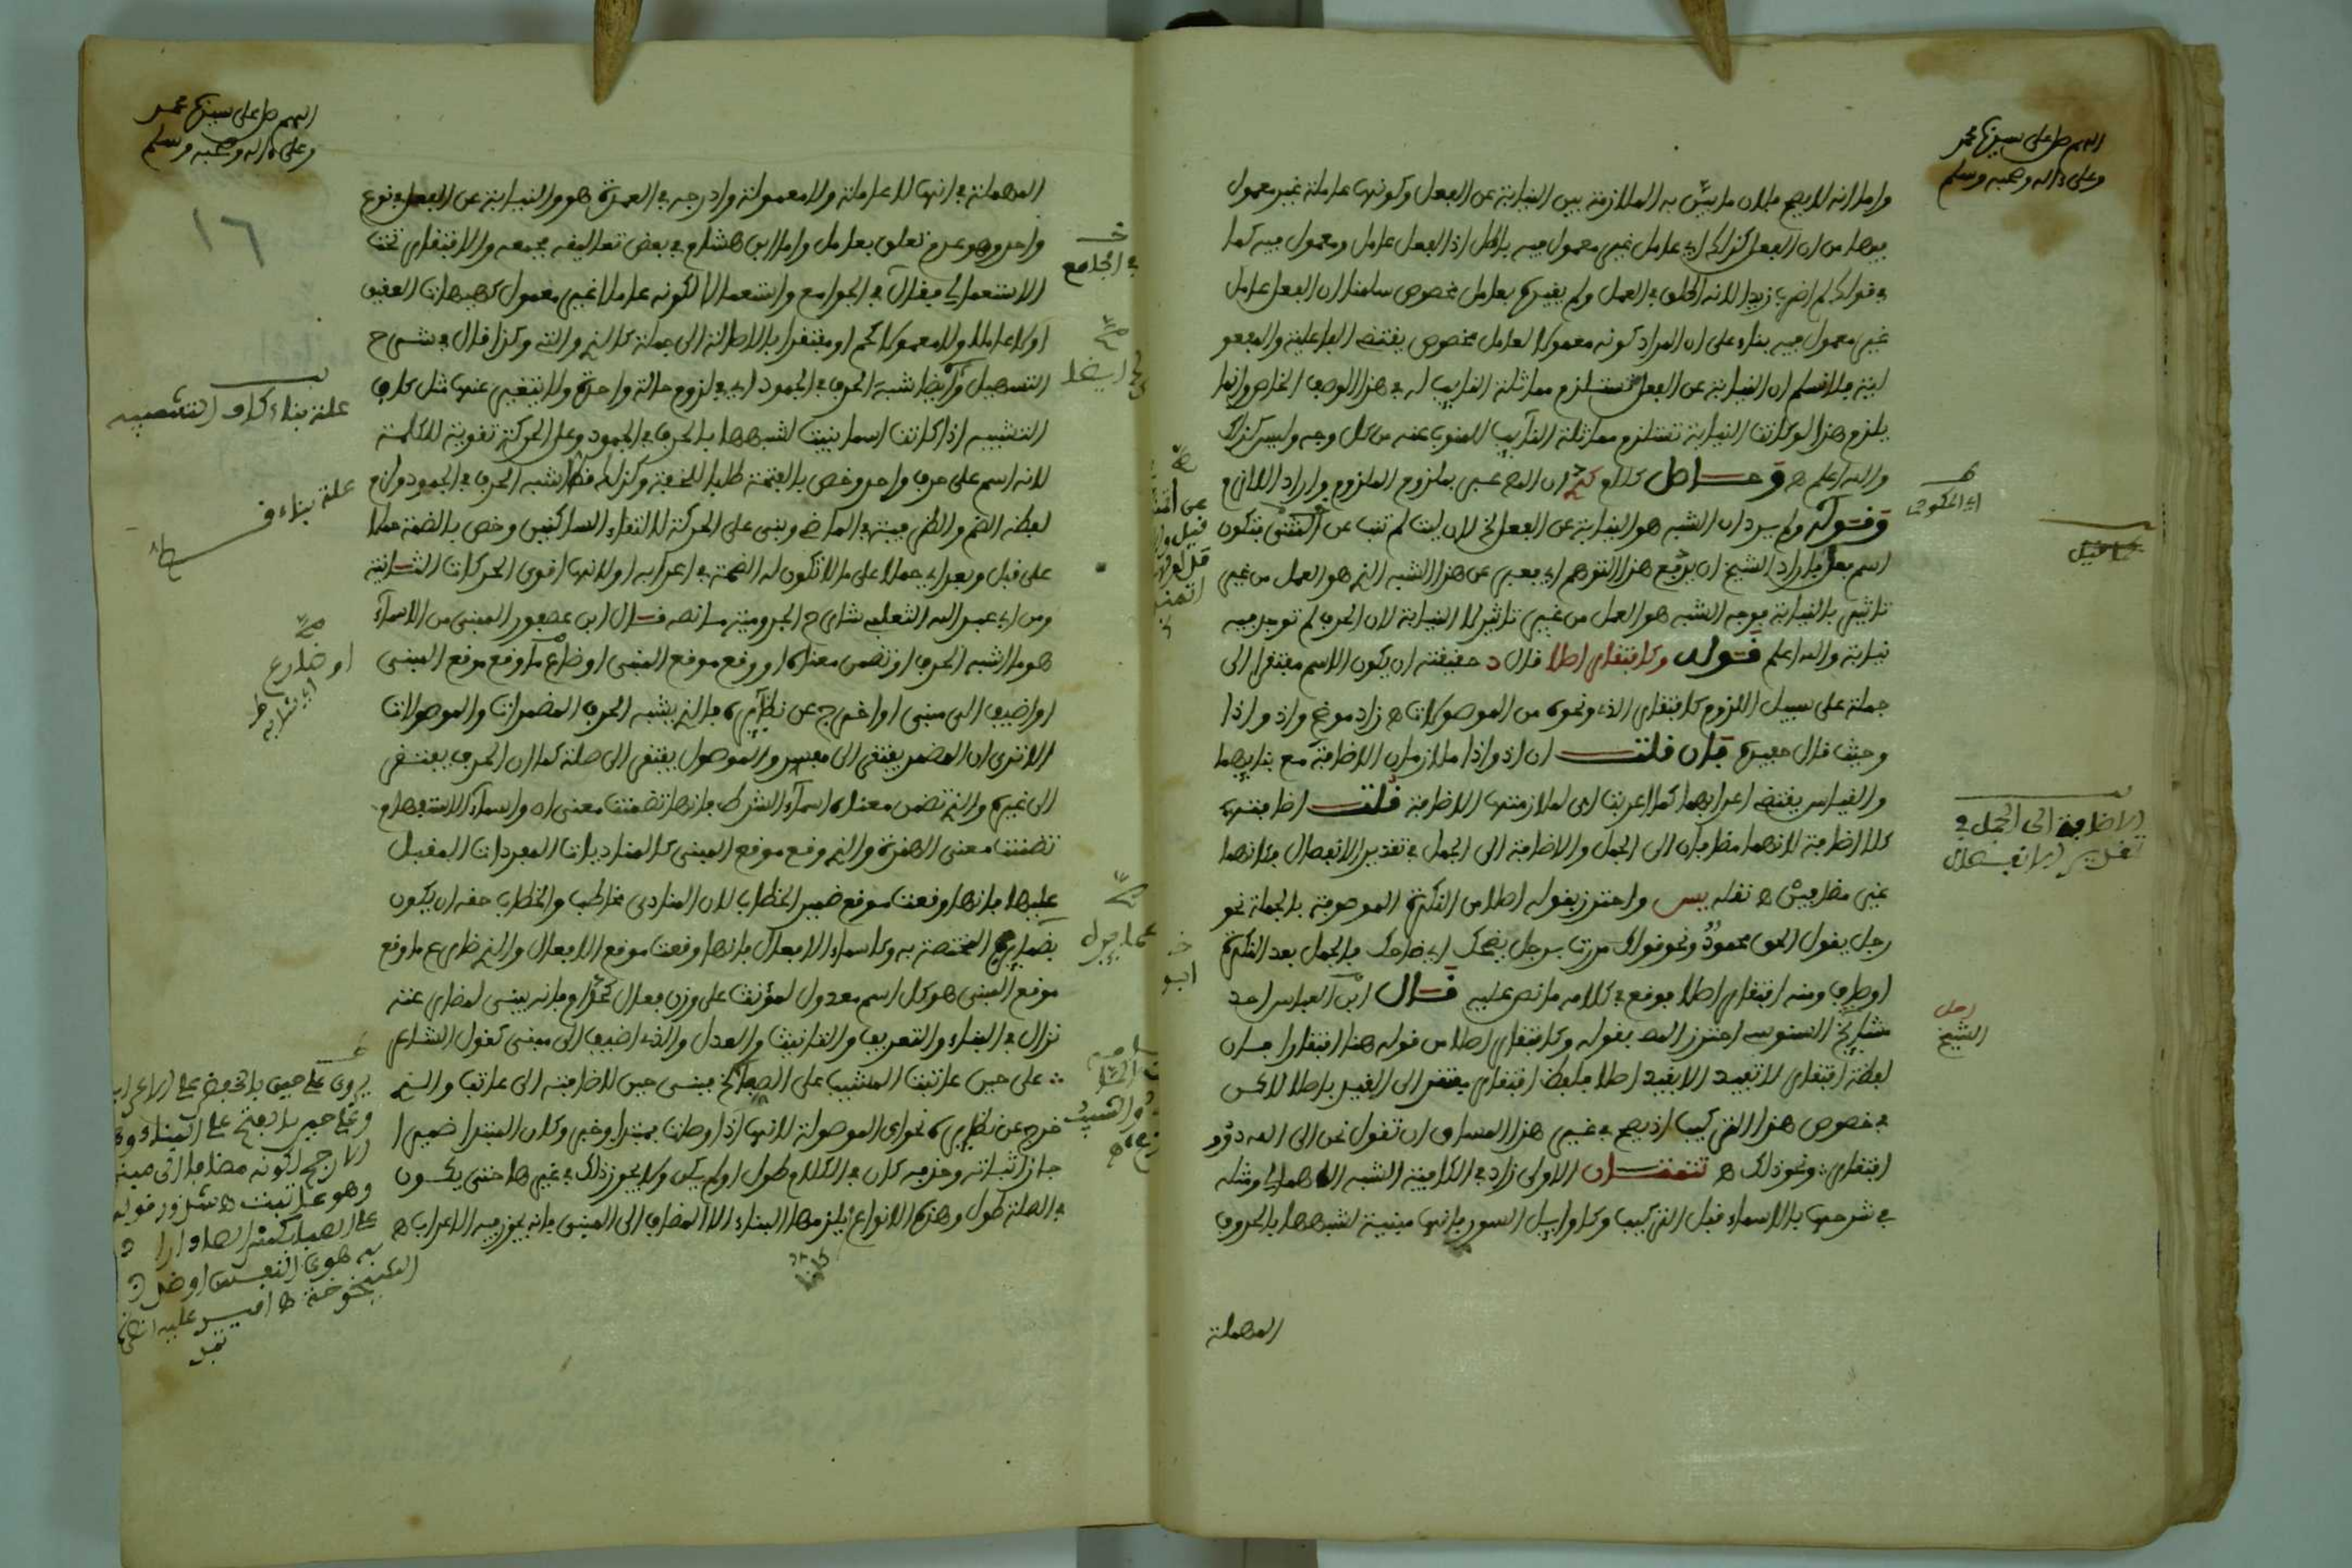 اللهم صل على سيدنا محمد
وعلى ءاله وصحبه وسلم
واما انه لا يصح فلان ما بين به الملازمة بين النيابة عن الفعل وكونها عاملة غير معمول
فيها من ان الفعل كذلك اي عامل غير معمول فيه باطل اذ الفعل عامل ومعمول فيه كما
في قولك لم اضرب زيدا لانه اطلق في العمل ولم يقيده بعامل مخصوص سلمنا ان الفعل عامل
غير معمول فيه بناء على ان المراد كونه معمولا لعامل مخصوص يقتضي الفاعلية والمفعو
لية فلا نسلم ان النيابة عن الفعل تستلزم مماثلة النايب له في هذا الوصف الخاص وانما
يلزم هذا لو كانت النيابة تستلزم مماثلة النايب للمنوب عنه من كل وجه وليس كذلك
والله اعلم ه وحاصل كلام ان المص عبر بملزوم الملزوم واراد اللازم
وقوله ولم يرد ان الشبه هو النيابة عن الفعل الخ لان ليت لم تنب عن اتمنى فتكون
اسم فعل فاراد الشيخ ان يرفع هذا التوهم اي فعبر عن هذا الشبه الذي هو العمل من غير
تاثير بالنيابة فوجه الشبه هو العمل من غير تاثير لا النيابة لان الحرف لم توجد فيه
نيابة والله اعلم قوله وكافتقار اصلا قال د حقيقته ان يكون الاسم مفتقرا الى
جملة على سبيل اللزوم كافتقار الذي ونحوه من الموصولات ه زاد موضح واذ واذا
وحيث قال حفيده فان قلت ان اذ واذا ملازمان للاضافة مع بنايهما
والقياس يقتضي اعرابهما كما اعربت اي لملازمتها للاضافة قلت اضافتهما
كلا اضافة لانهما مضافان الى الجمل والاضافة الى الجمل في تقدير الانفصال فكانهما
غير مضافين ه نقله يس واحترز بقوله اصلا من النكرة الموصوفة بالجملة نحو
رجل يقول الحق محمود ونحو قولك مررت برجل يضحك اي ضاحك فالجمل بعد النكرة
اوصاف ومنه افتقار اصلا فوقع في كلامه ما نص عليه قال ابو العباس احد
مشايخ السنوسي احترز المص بقوله وكافتقار اصلا من قوله هنا افتقارا فان
لفظة افتقار لا تفيد الا بقيد اصلا فلفظ افتقار يفتقر الى القيد باصلا لاكن
في خصوص هذا التركيب اذ يصح في غير هذا المساق ان تقول نحن الى الله ذوو
افتقار ونحو ذلك ه تنبيهان الاول زاد في الكافية الشبه الاهمالي ومثله
في شرحها بالاسماء قبل التركيب وكاوايل السور فانها مبنية لشبهها بالحروف
المهملة
اي المكودي
ما قيل
الاضافة الى الجمل في
تقدير الانفصال
اصل
الشيخ
اللهم صل على سيدنا محمد
وعلى ءاله وصحبه وسلم
١٦
المهملة في انها لا عاملة ولا معمولة وادرجه في العمدة هو والنيابة عن الفعل في نوع
واحد وهو عدم تعلق بعامل واما ابن هشام في بعض تعاليقه فجمعه والافتقار تحت
الاستعمالي فقال في الجوامع واستعمالا لكونه عاملا غير معمول كهيهات العقيق
او لا عاملا ولا معمولا كحم او مفتقرا بالاصالة الى جملة كالذي والتي وكذا قال في شرح
التسهيل وايضا شبه الحرف في الجمود اي في لزوم حالة واحدة ولا يتغير عنها مثل كاف
التشبيه اذا كانت اسما بنيت لشبهها بالحرف في الجمود وعلى الحركة تقوية للكلمة
لانه اسم على حرف واحد وخص بالفتحة طلبا للخفة وكذلك قط اشبه الحرف في الجمود ولزم
لفظه الضم والظرفية في الماضي وبني على الحركة لالتقاء الساكنين وخص بالضمة حملا
على قبل وبعد اي حملا على ما لا تكون له الضمة في اعرابه او لانها اقوى الحركات الثلاثة
ومن ابي عبد الله الثعلبي شارح الجرومية ما نصه قال ابن عصفور المبني من الاسماء
هو ما اشبه الحرف او تضمن معناه او وقع موقع المبني او ضارع ما وقع موقع المبني
او اضيف الى مبني او اخرج عن نظايره فالذي يشبه الحرف المضمرات والموصولات
الا ترى ان المضمر يفتقر الى مفسر والموصول يفتقر الى صلة كما ان الحرف يفتقر
الى غيره والذي تضمن معناه اسماء الشرط فانها تضمنت معنى ان واسماء الاستفهام
تضمنت معنى الهمزة والذي وقع موقع المبني كالمناديات المفردات المقبل
عليها فانها وقعت موقع ضمير الخطاب لان المنادى مخاطب والخطاب حقه ان يكون
بضمايره المختصة به وكاسماء الافعال فانها وقعت موقع الافعال والذي ضارع ما وقع
موقع المبني هو كل اسم معدول لمؤنث على وزن فعال كحذام فانه يبنى لمضارعته
نزال في البناء والتعريف والتانيث والعدل والذي اضيف الى مبني كقول الشاعر
على حين عاتبت المشيب على الصبا الخ فبنى حين لاضافته الى عاتب والذي
خرج عن نظايره نحو اي الموصولة لانها اذا وصلت بمبتدإ وخبر وكان المبتدأ ضميرا
جاز اثباته وحذفه كان في الكلام طول او لم يكن ولا يجوز ذلك في غيرها حتى يكون
في الصلة طول وهذه الانواع يلزمها البناء الا المضاف الى المبني فانه يجوز فيه الاعراب ه
علة بناء كاف التشبيه
علة بناء قط
او ضارع
اي شابه
في الجامع
ايضا
يروى على حين بالخفض على الاعراب
وعلى حين بالفتح على البناء وهو
الارجح لكونه مضافا الى مبني
وهو عاتبت